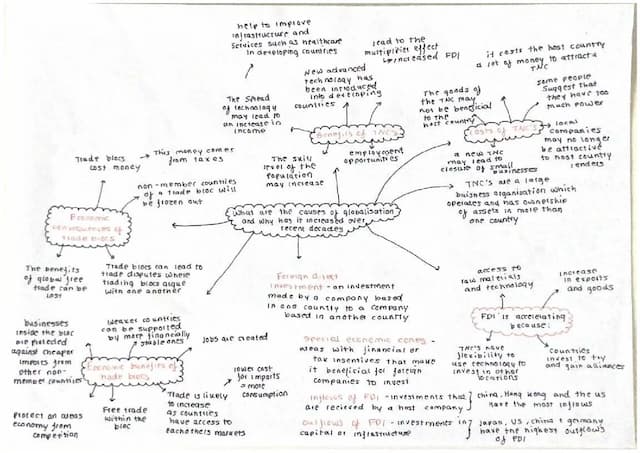 help to improve
infrastructure and
services such as healthcare
in developing countries
lead to the
multiplier effect
increased FDI
it costs the host country
a lot of money to attract a
TNC
New advanced
technology has
been introduced
into developing
countries
The spread
of technology
may lead to
an increase in
income
The goods of
the TNC may
not be beneficial
to the
host country
some people
suggest that
they have too
much power
Benefits of TNC's
Costs of TNC's
local
companies
may no longer
be attractive
to host country
lenders
employment
opportunities
The skill
level of the
population
may increase
a new TNC
may lead to
closure of small
businesses
Trade blocs
cost money
This money comes
from taxes
non-member countries
of a trade bloc will
be frozen out
Economic
consequences of
trade blocs
The benefits
of global free
trade can be
lost
Trade blocs can lead to
trade disputes where
trading blocs argue
with one another
What are the causes of globalisation
and why has it increased over
recent decades
TNC's are a large
buisness organisation which
operates and has ownership
of assets in more than
one country
Foreign direct
investment - an investment
made by a company based
in one country to a company
based in another country
access to
raw materials
and technology
increase
in exports
and goods
FDI is accelerating
because:
TNC's have
flexibility to
use technology to
invest in other
locations
Countries
invest to try
and gain alliances
businesses
inside the bloc
are protected
against cheaper
imports from
other non-
member countries
Weaker countries
can be supported
by more financially
stable ones
Jobs are created
Economic benefits of
trade blocs
lower cost
for imports
= more
consumption
Trade is likely to
increase as
countries
have access to
eachothers markets
Free trade
within the
bloc
Protect an areas
economy from
competition
Special economic zones -
areas with financial or
tax insentives that make
it beneficial for foreign
companies to invest
inflows of FDI - investments that
are recieved by a host company
china, Hong Kong and the US
have the most inflows
outflows of FDI - investments in
capital or infrastructure
Japan, US, china + germany
have the highest outflows
of FDI